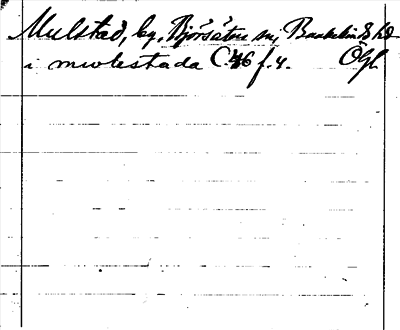 Mulstad, by, Björsäter sn, Bankekinds hd
i mwlestada C 46 f. 4. Ögl.